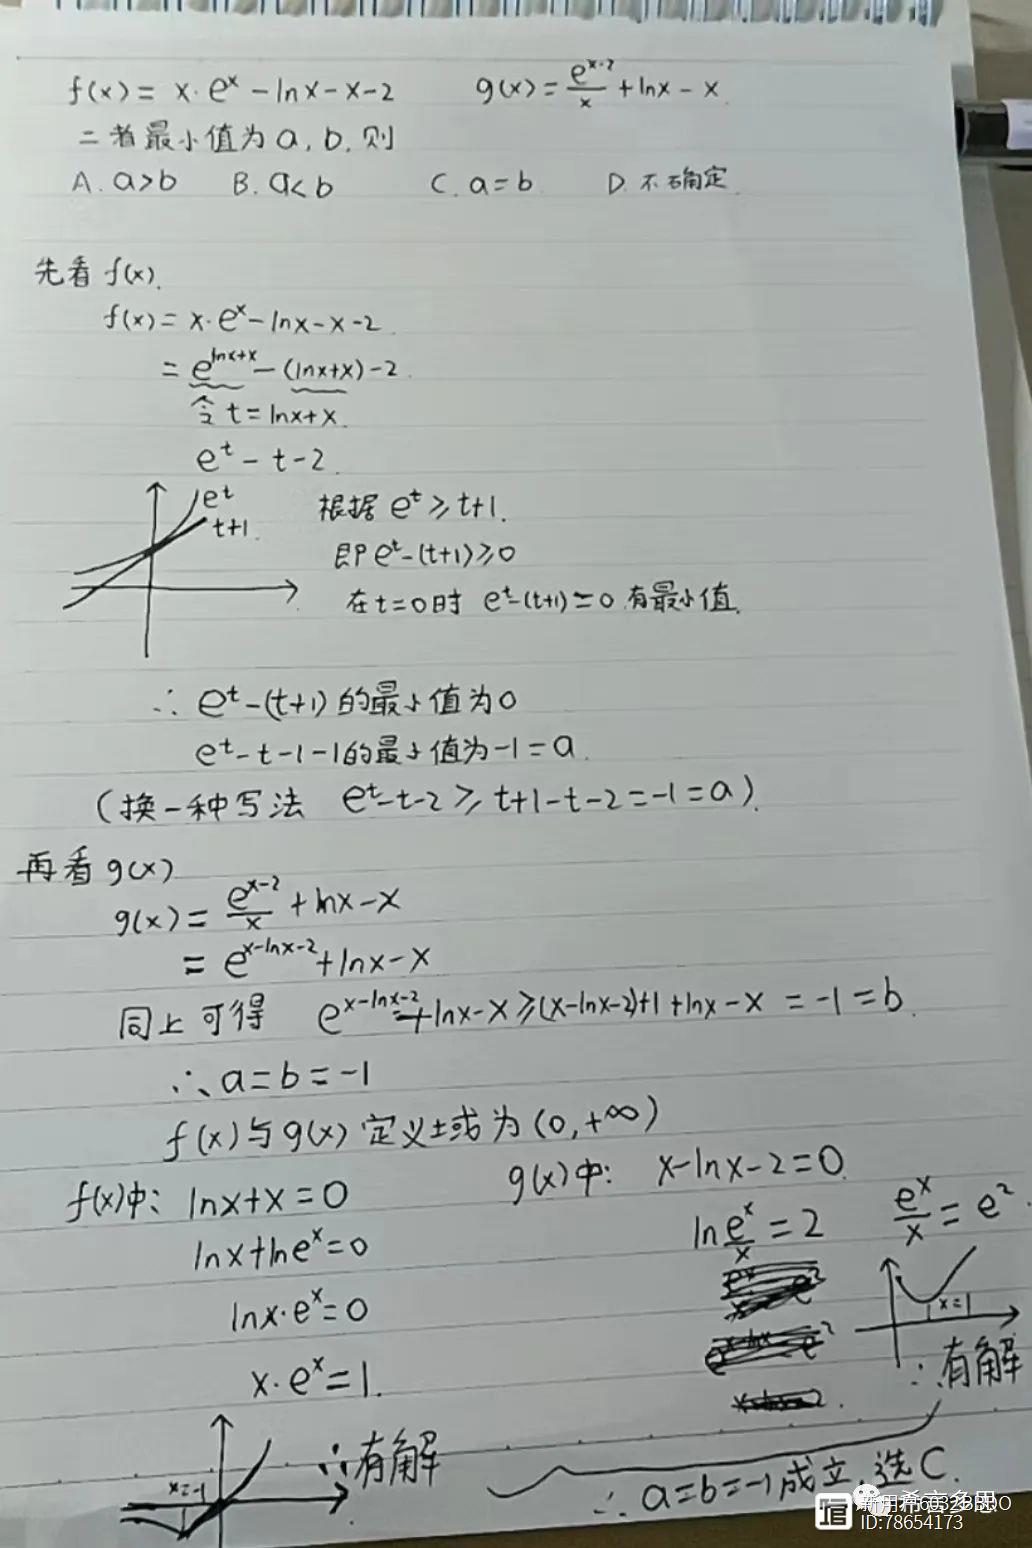 f(x) = x·e^x - lnx - x - 2    g(x) = e^(x-2)/x + lnx - x
二者最小值为a, b, 则
A. a>b    B. a<b    C. a=b    D. 不确定
先看 f(x).
f(x) = x·e^x - lnx - x - 2
= e^(lnx+x) - (lnx+x) - 2
令 t = lnx+x
e^t - t - 2
e^t
t+1
根据 e^t ≥ t+1.
即 e^t-(t+1) ≥ 0
在t=0时 e^t-(t+1)=0 有最小值.
∴ e^t-(t+1) 的最小值为0
e^t - t - 1 - 1的最小值为-1 = a
(换一种写法 e^t-t-2 ≥ t+1-t-2 = -1 = a).
再看 g(x)
g(x) = e^(x-2)/x + lnx - x
= e^(x-lnx-2) + lnx - x
同上可得 e^(x-lnx-2) + lnx - x ≥ (x-lnx-2)+1 + lnx - x = -1 = b
∴ a = b = -1
f(x)与g(x) 定义域为 (0, +∞)
f(x)中: lnx + x = 0
lnx + lne^x = 0
lnx·e^x = 0
x·e^x = 1.
x=-1
∴有解
g(x)中: x - lnx - 2 = 0
ln e^x/x = 2    e^x/x = e^2
x=1
∴有解
∴ a=b=-1成立, 选C.
ID:78654173